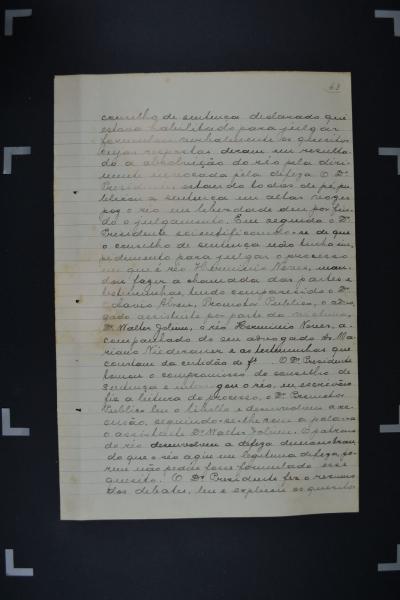 63
conselho de sentença declarado que
estava habilitado para julgar
formulou verbalmente os quesitos
cujas respostas deram em resulta-
do a absolvição do réo pela diri-
mente invocada pela defeza. O Dr.
Presidente, estando todos de pé, pu-
blicou a sentença em altas vozes
poz o réo em liberdade e deu por fin-
do o julgamento. Em seguida o Dr.
Presidente scientificando-se de que
o conselho de sentença não tinha im-
pedimento para julgar o processo
em que é réo Herminio Nunes, man-
dou fazer a chamada das partes e
testemunhas, tendo comparecido o Dr.
Abreu, Promotor Publico, o advo-
gado assistente por parte da victima,
Dr. Walter Jobim, o réo Herminio Nunes, a-
companhado do seu advogado Dr. Ma-
riano Niederauer e as testemunhas que
constam da certidão de fs. O Dr. Presidente
tomou o compromisso do conselho de
sentença e interrogou o réo, eu escrivão
fiz a leitura do processo, o Dr. Promotor
Publico leu o libello e desenvolveu a ac-
cusação, seguindo-se-lhe com a palavra
o assistente Dr. Walter Jobim. O patrono
do réo desenvolveu a defeza demonstran-
do que o réo agiu em legitima defeza, po-
rem não pediu fosse formulado esse
quesito. O Dr. Presidente fez o resumo
dos debates, leu e explicou os quesitos